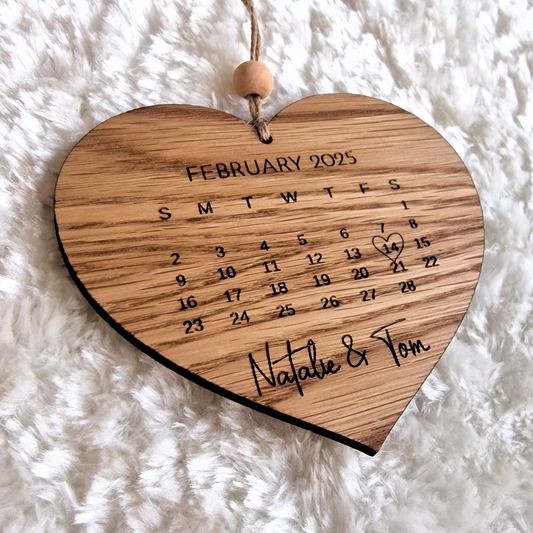 FEBRUARY 2025
S M T W T F S
1
2 3 4 5 6 7 8
9 10 11 12 13 14 15
16 17 18 19 20 21 22
23 24 25 26 27 28
Natalie & Tom